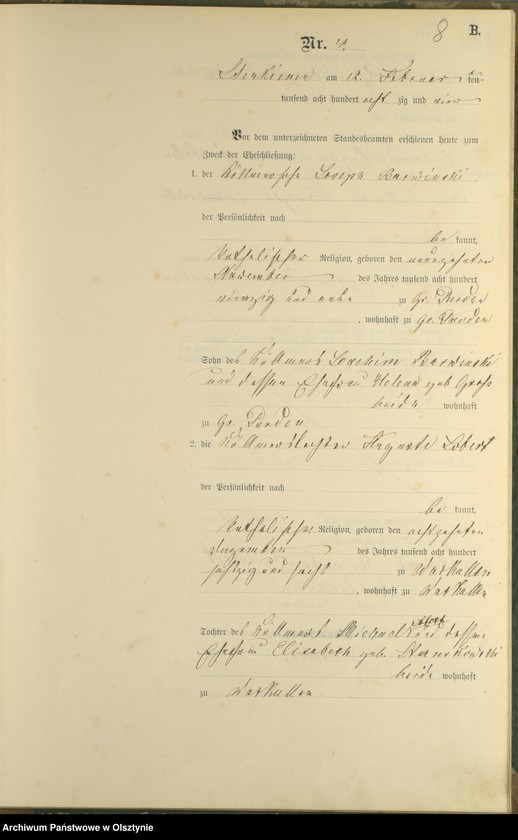 8
B.
Nr. 4.
am 12. Februar ten
tausend acht hundert acht zig und vier
Vor dem unterzeichneten Standesbeamten erschienen heute zum
Zweck der Eheschließung:
1. der Köllmersohn Joseph Barwinski
der Persönlichkeit nach
be kannt,
katholischer Religion, geboren den neunzehnten
November des Jahres tausend acht hundert
vierzig und zu Gr. Purden
, wohnhaft zu Gr. Purden
Sohn des Köllmers Joachim Barwinski
und dessen Ehefrau Helena geb Groß
beide wohnhaft
zu Gr. Purden
2. die Köllmerstochter Auguste
der Persönlichkeit nach
be kannt,
katholischer Religion, geboren den achtzehnten
Dezember des Jahres tausend acht hundert
sechzig und sechs zu Warkallen
, wohnhaft zu Warkallen
Tochter des Köllmers Michael und dessen
Ehefrau Elisabeth geb.
beide wohnhaft
zu Warkallen
Archiwum Państwowe w Olsztynie